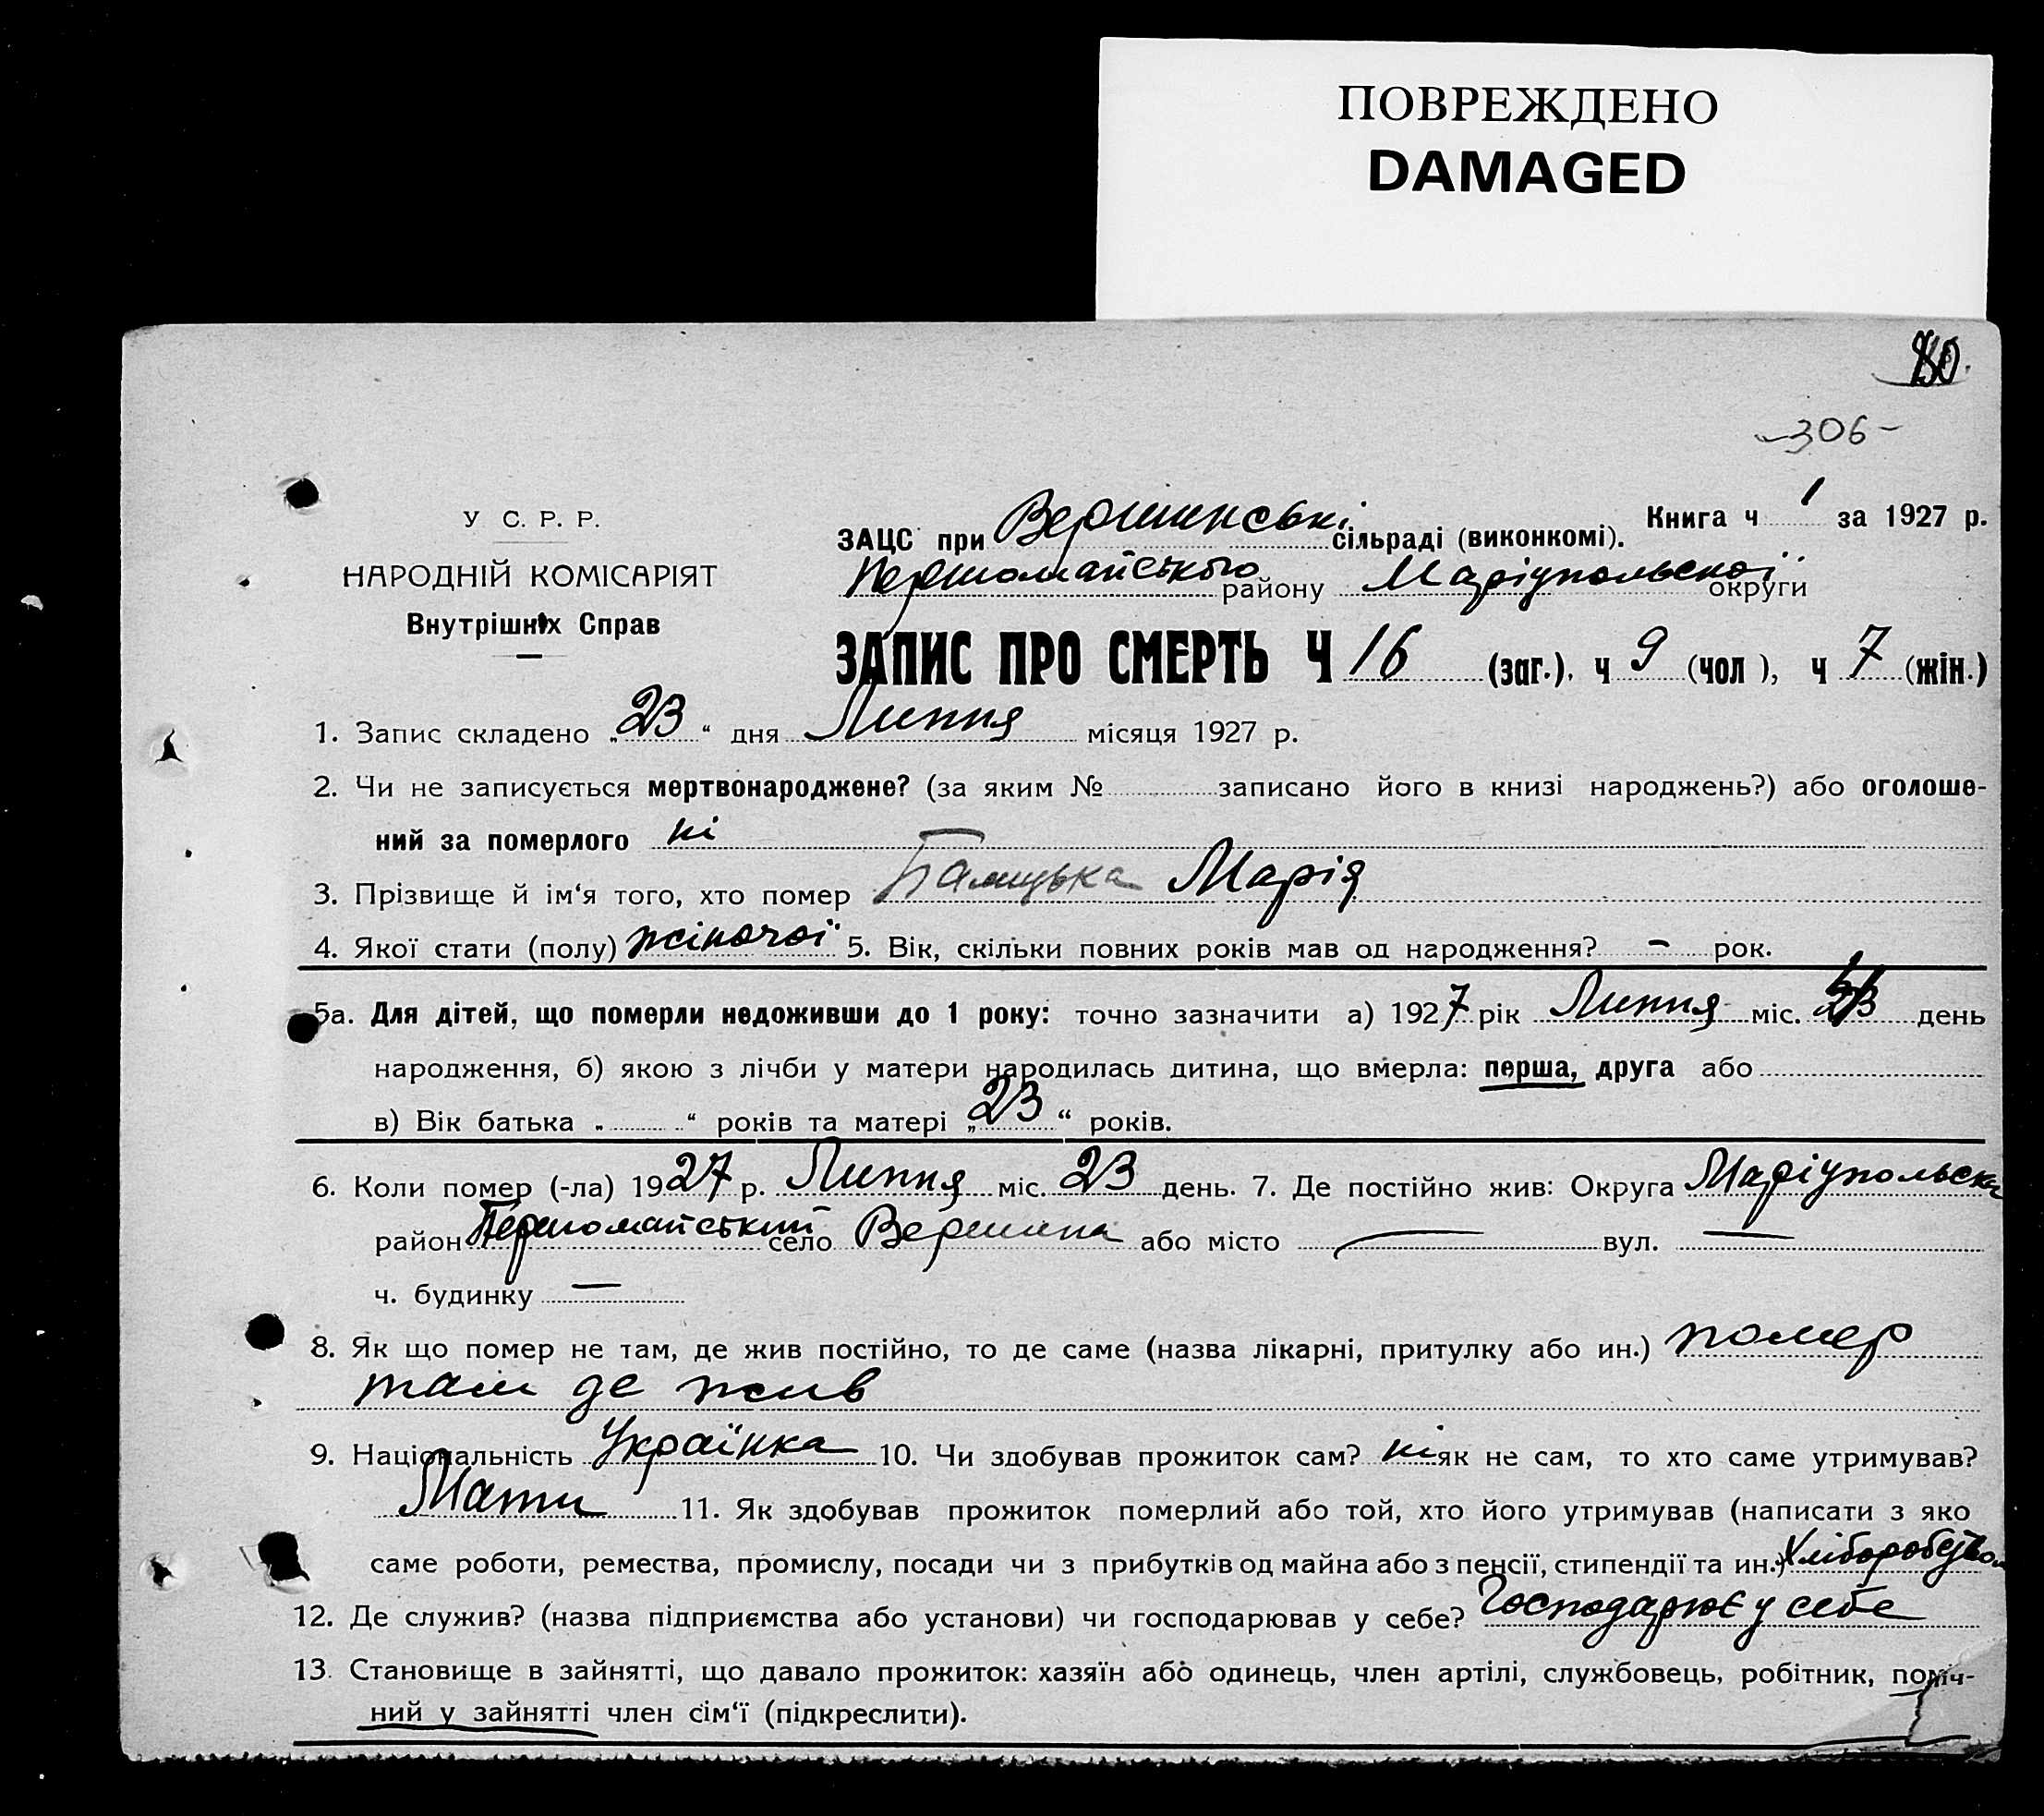 ПОВРЕЖДЕНО
DAMAGED
-306-
У С. Р. Р.
НАРОДНІЙ КОМІСАРІЯТ
Внутрішніх Справ
Книга ч 1 за 1927 р.
ЗАЦС при Вершинські сільраді (виконкомі).
Першомайського району Маріупольської округи
ЗАПИС ПРО СМЕРТЬ Ч 16 (заг.), ч 9 (чол), ч 7 (жін.)
1. Запис складено „23“ дня Липня місяця 1927 р.
2. Чи не записується мертвонароджене? (за яким № записано його в книзі народжень?) або оголоше-
ний за померлого ні
3. Прізвище й ім‘я того, хто помер Марія
4. Якої стати (полу) жіночої 5. Вік, скільки повних років мав од народження? – рок.
5а. Для дітей, що померли недоживши до 1 року: точно зазначити а) 1927 рік Липня міс. день
народження, б) якою з лічби у матери народилась дитина, що вмерла: перша, друга або
в) Вік батька „ “ років та матері „23“ років.
6. Коли помер (-ла) 1927 р. Липня міс. 23 день. 7. Де постійно жив: Округа Маріупольська
район Першомайський село Вершина або місто — вул. —
ч. будинку —
8. Як що помер не там, де жив постійно, то де саме (назва лікарні, притулку або ин.) помер
там де жив
9. Національність Українка 10. Чи здобував прожиток сам? ні як не сам, то хто саме утримував?
Мати 11. Як здобував прожиток померлий або той, хто його утримував (написати з яко
саме роботи, ремества, промислу, посади чи з прибутків од майна або з пенсії, стипендії та ин.) Хліборобством
12. Де служив? (назва підприємства або установи) чи господарював у себе? Господарює у себе
13. Становище в зайнятті, що давало прожиток: хазяїн або одинець, член артілі, службовець, робітник, поміч-
ний у зайнятті член сім‘ї (підкреслити).